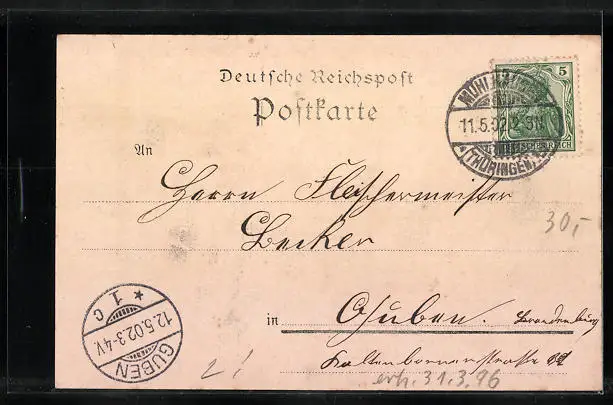 Deutsche Reichspost
Postkarte
5
MÜHLHAUSEN
11.5.02.2-3N
* (THÜRINGEN)
An
Herrn Fleischermeister
Becker
30,-
in Guben. Brandenburg
Kaltenbornerstraße
* 1 c
12.5.02.3-4V.
GUBEN
2!
erh. 31.3.96